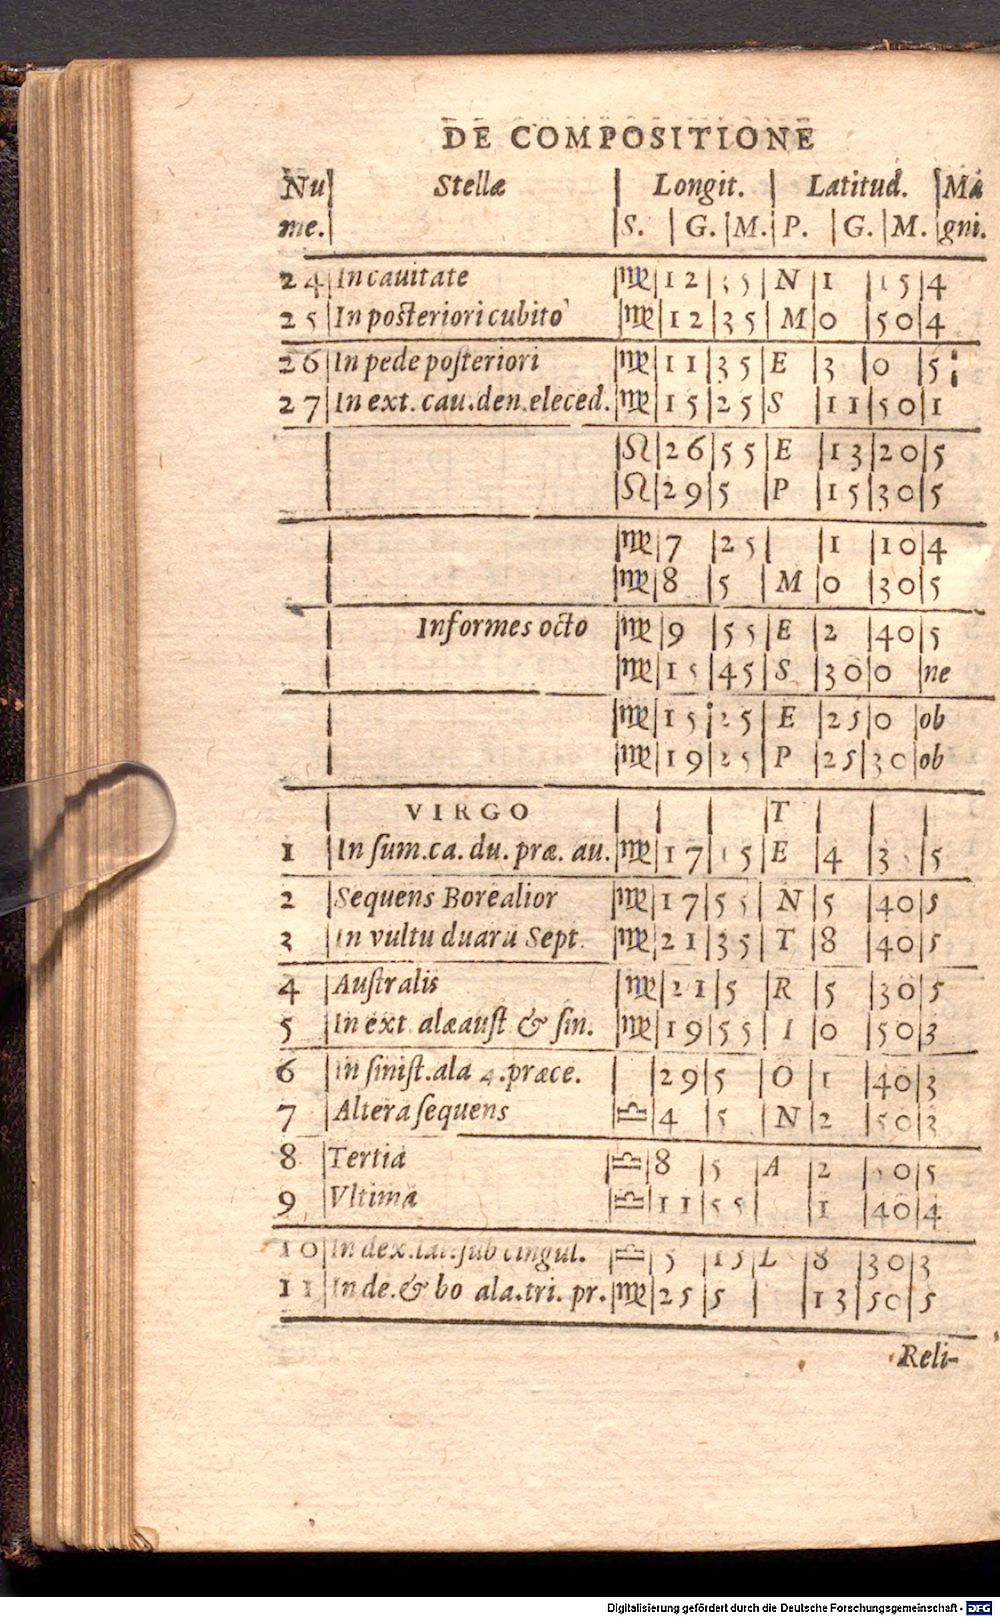 DE COMPOSITIONE
Nu | Stellæ | Longit. | Latitud. | Ma
me. | | S. | G. | M. | P. | G. | M. | gni.
24 | In cauitate | ♍ | 12 | 35 | N | 1 | 15 | 4
25 | In posteriori cubito | ♍ | 12 | 35 | M | 0 | 50 | 4
26 | In pede posteriori | ♍ | 11 | 35 | E | 3 | 0 | 5
27 | In ext. cau.den.eleced. | ♍ | 15 | 25 | S | 11 | 50 | 1
| ♌ | 26 | 55 | E | 13 | 20 | 5
| ♌ | 29 | 5 | P | 15 | 30 | 5
| ♍ | 7 | 25 | | 1 | 10 | 4
| ♍ | 8 | 5 | M | 0 | 30 | 5
| Informes octo | ♍ | 9 | 55 | E | 2 | 40 | 5
| ♍ | 15 | 45 | S | 30 | 0 | ne
| ♍ | 15 | 25 | E | 25 | 0 | ob
| ♍ | 19 | 25 | P | 25 | 30 | ob
| VIRGO | | | | T | | |
1 | In sum.ca. du. præ. au. | ♍ | 17 | 15 | E | 4 | 3 | 5
2 | Sequens Borealior | ♍ | 17 | 55 | N | 5 | 40 | 5
3 | In vultu duarū Sept. | ♍ | 21 | 35 | T | 8 | 40 | 5
4 | Australis | ♍ | 21 | 5 | R | 5 | 30 | 5
5 | In ext alæ aust & sin. | ♍ | 19 | 55 | I | 0 | 50 | 3
6 | In sinist.ala 4.præce. | | 29 | 5 | O | 1 | 40 | 3
7 | Altera sequens | ♎ | 4 | 5 | N | 2 | 50 | 3
8 | Tertia | ♎ | 8 | 5 | A | 2 | 0 | 5
9 | Vltima | ♎ | 11 | 55 | | 1 | 40 | 4
10 | In dex.lat.sub cingul. | ♎ | 5 | 15 | L | 8 | 30 | 3
11 | In de.& bo ala.tri. pr. | ♍ | 25 | 5 | | 13 | 50 | 5
Reli-
Digitalisierung gefördert durch die Deutsche Forschungsgemeinschaft - DFG